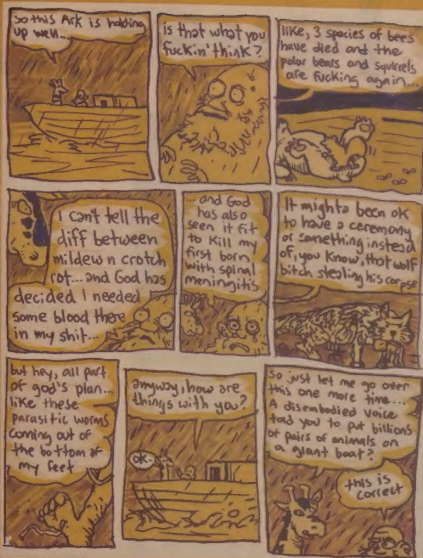 So this Ark is holding
up well..
is that what you
fuckin' think?
like, 3 species of bees
have died and the
polar bears and squirrels
are fucking again...
I can't tell the
diff between
mildew n crotch
rot... and God has
decided I needed
some blood there
in my shit...
...and God
has also
seen it fit
to kill my
first born
with spinal
meningitis
It mighta been ok
to have a ceremony
or something instead
of, you know, that wolf
bitch stealing his corpse
but hey, all part
of god's plan...
like these
parasitic worms
coming out of
the bottom of
my feet
anyway, how are
things with you?
ok..
So just let me go over
this one more time...
A disembodied voice
told you to put billions
of pairs of animals on
a giant boat?
this is
correct